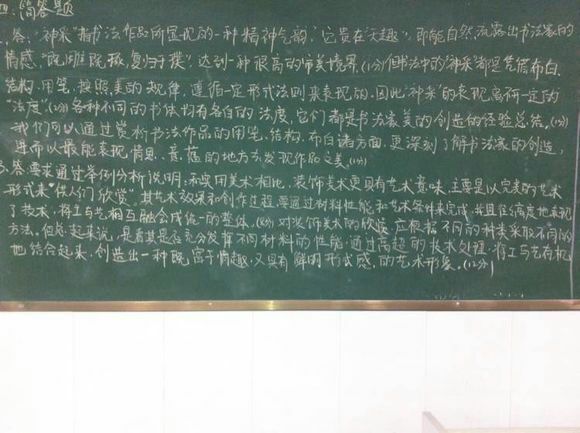 四.简答题
答:"神采"指书法作品所显现的一种精神气韵,它贵在"天趣",即能自然流露出书法家的
情感,"既雕既琢,复归于朴",达到一种很高的审美境界。(1分)但书法中的"神采"都是凭借布白、
结构、用笔,按照美的规律,遵循一定形式法则来表现的。因此"神采"的表现离不开一定的
"法度"。各种不同的书体均有各自的法度,它们都是书法家美的创造的经验总结。
我们可以通过赏析书法作品的用笔、结构、布白诸方面,更深刻了解书法家的创造,
进而以最能表现情思、意蕴的地方去发现作品之美。
答:要求通过举例分析说明,和实用美术相比,装饰美术更具有艺术意味,主要是以完美的艺术
形式来"供人们欣赏",其艺术效果和创作过程要通过材料性能和艺术条件来完成,并且往往高度地表现
了技术,将工与艺相互融合成统一的整体。对装饰美术的欣赏应根据不同的种类采取不同的
方法。但总起来说,是看其是否充分发挥不同材料的性能,通过高超的技术处理,将工与艺有机
地结合起来,创造出一种既富于情趣,又具有鲜明形式感的艺术形象。(12分)